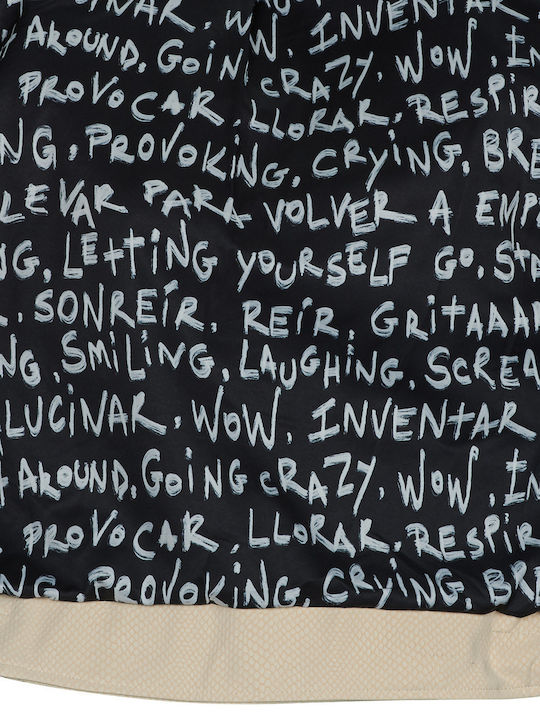 WOW, INVENTAR
AROUND, GOING CRAZY, WOW, IN
PROVOCAR, LLORAR, RESPIR
NG, PROVOKING, CRYING, BRE
LEVAR PARA VOLVER A EMP
NG, LETTING YOURSELF GO, STA
R, SONREÍR, REÍR, GRITAAAA
NG, SMILING, LAUGHING, SCREA
LUCINAR, WOW, INVENTAR
T AROUND, GOING CRAZY, WOW, IN
PROVOCAR, LLORAR, RESPIR
NG, PROVOKING, CRYING, BRE